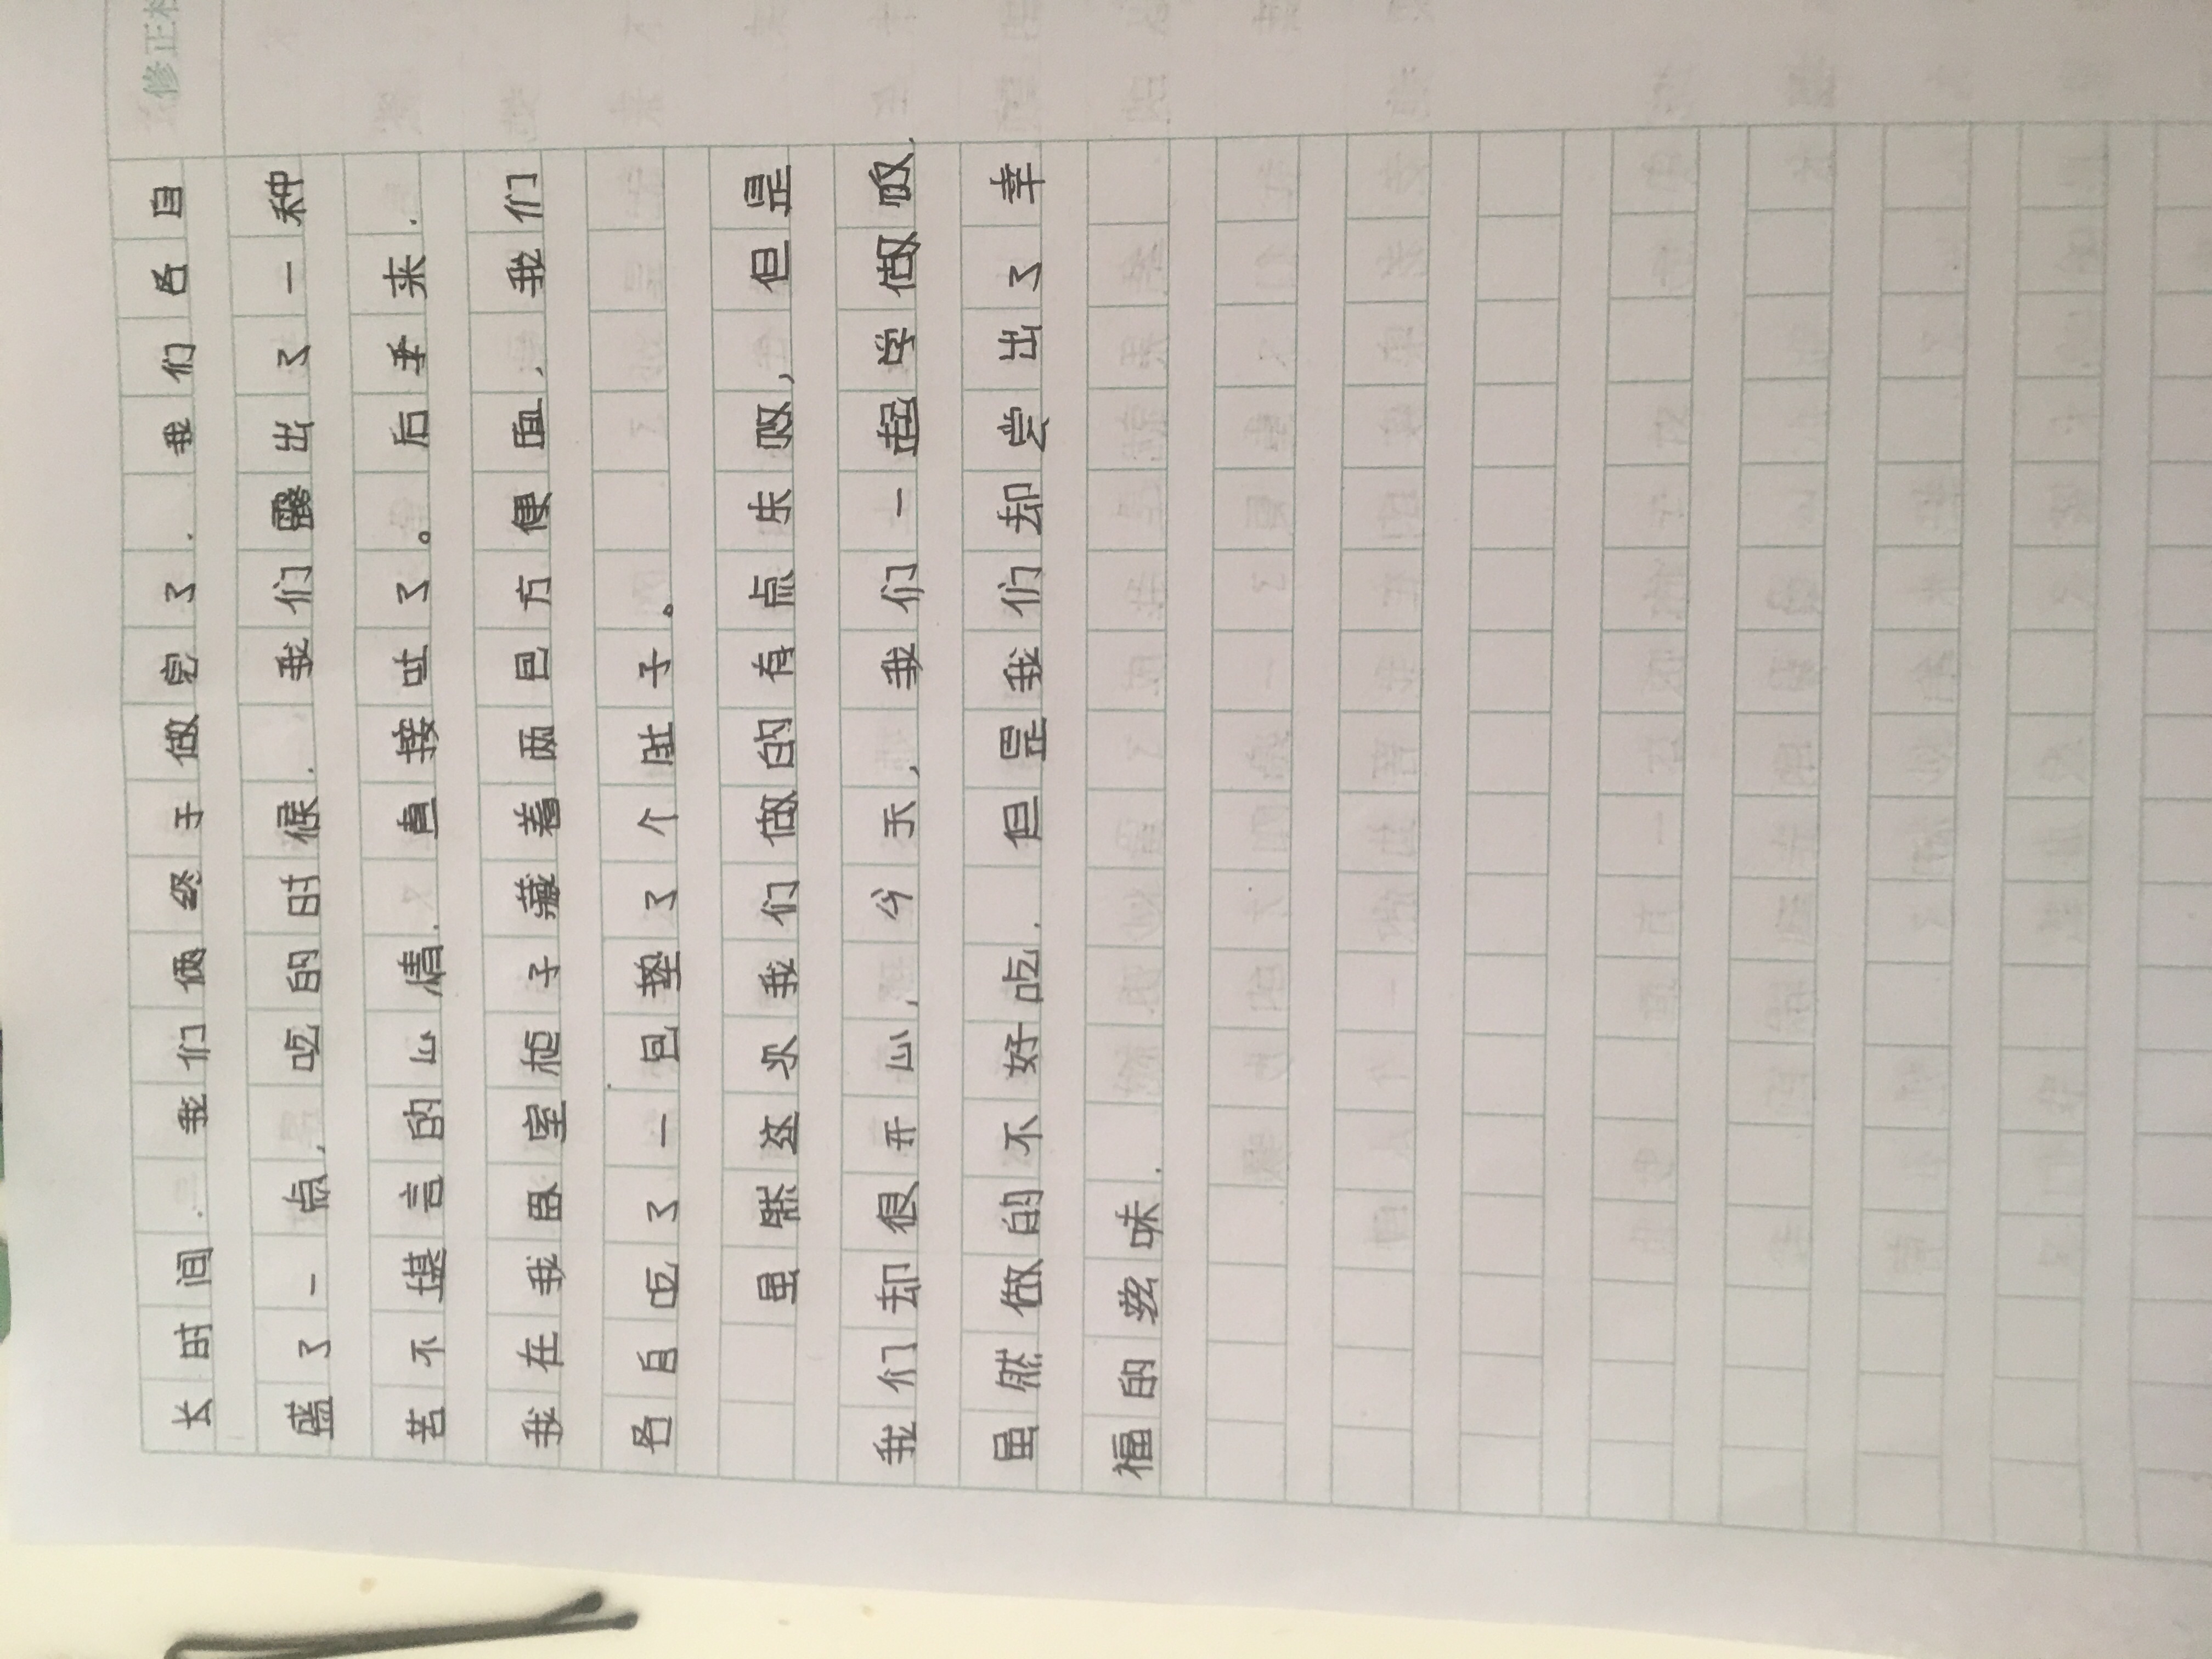 修正栏
长时间.我们俩终于做完了.我们各自
盛了一点,吃的时候.我们露出了一种
苦不堪言的心情.直接吐了。后来来.
我在我卧室柜子藏着两包方便面,我们
各自吃了一包垫了个肚子。
虽然这次我们做的有点失败,但是
我们却很开心,今天,我们一起学做饭.
虽然做的不好吃.但是我们却尝出了幸
福的滋味.